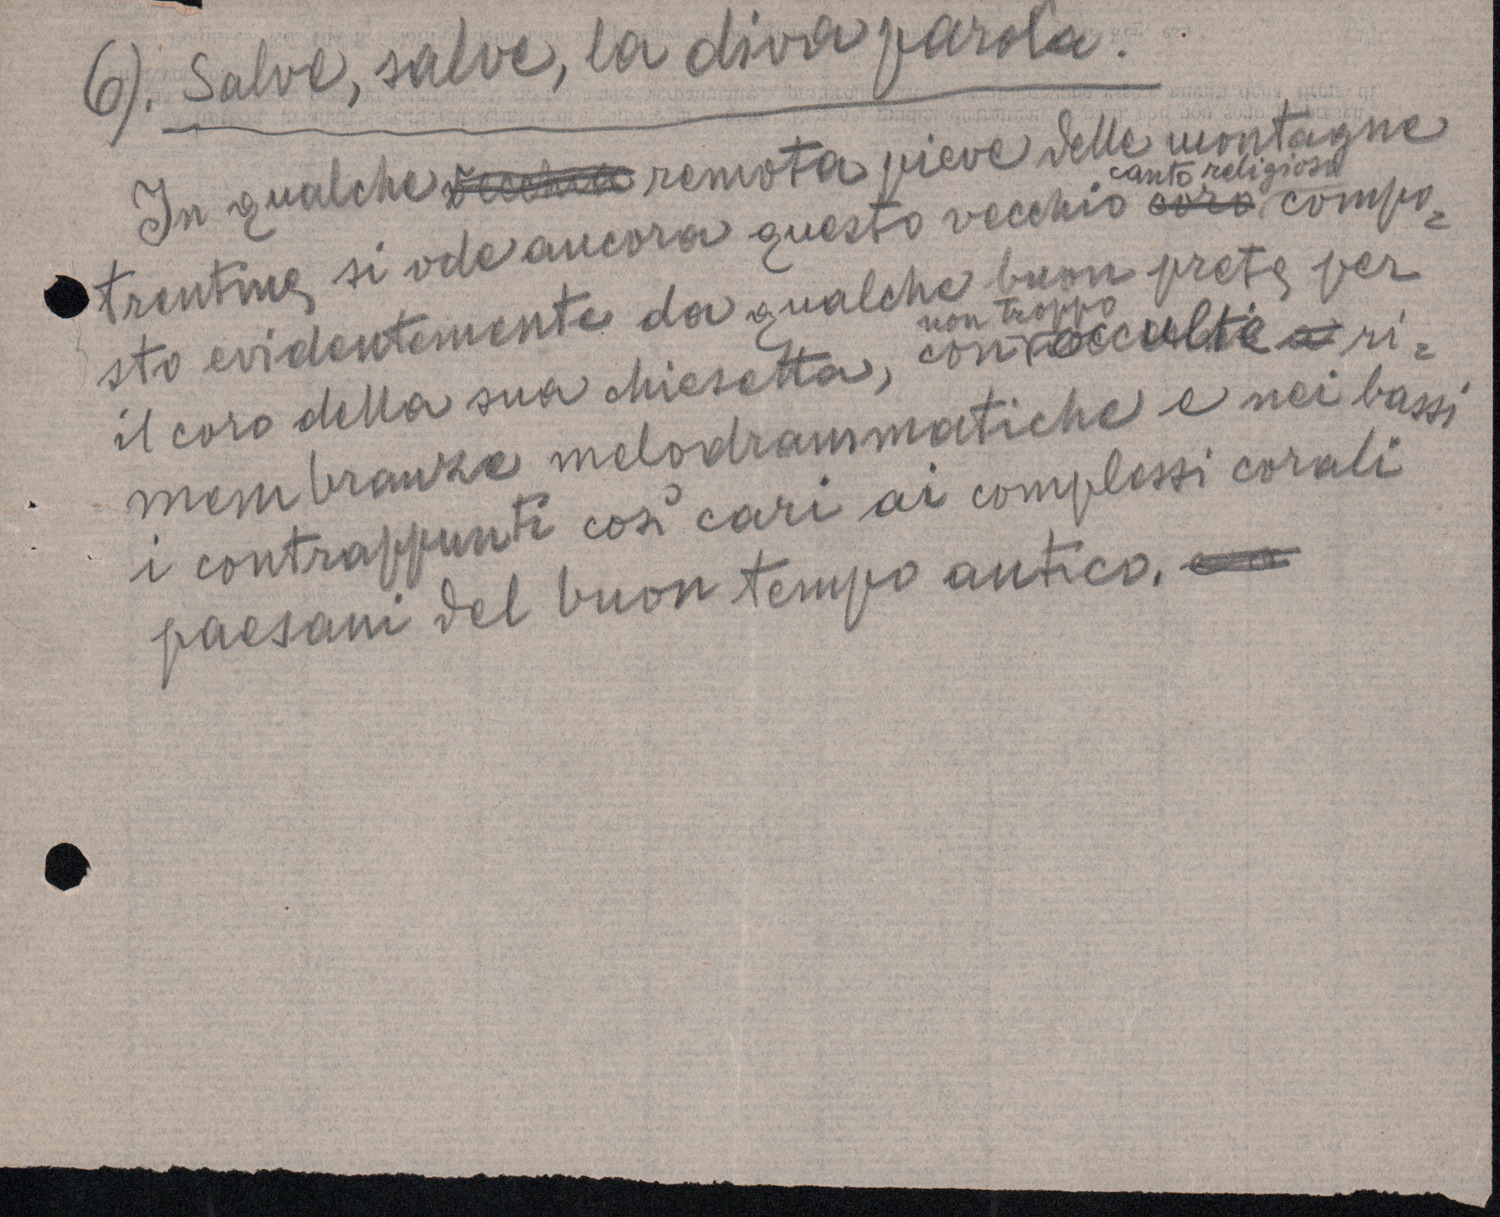 6). Salve, salve, la diva parola.
In qualche vecchia remota pieve delle montagne
canto religioso
trentine, si ode ancora questo vecchio coro compo=
sto evidentemente da qualche buon prete, per
non troppo
il coro della sua chiesetta, con occulte ri=
membranze melodrammatiche e nei bassi
i contrappunti così cari ai complessi corali
paesani del buon tempo antico.